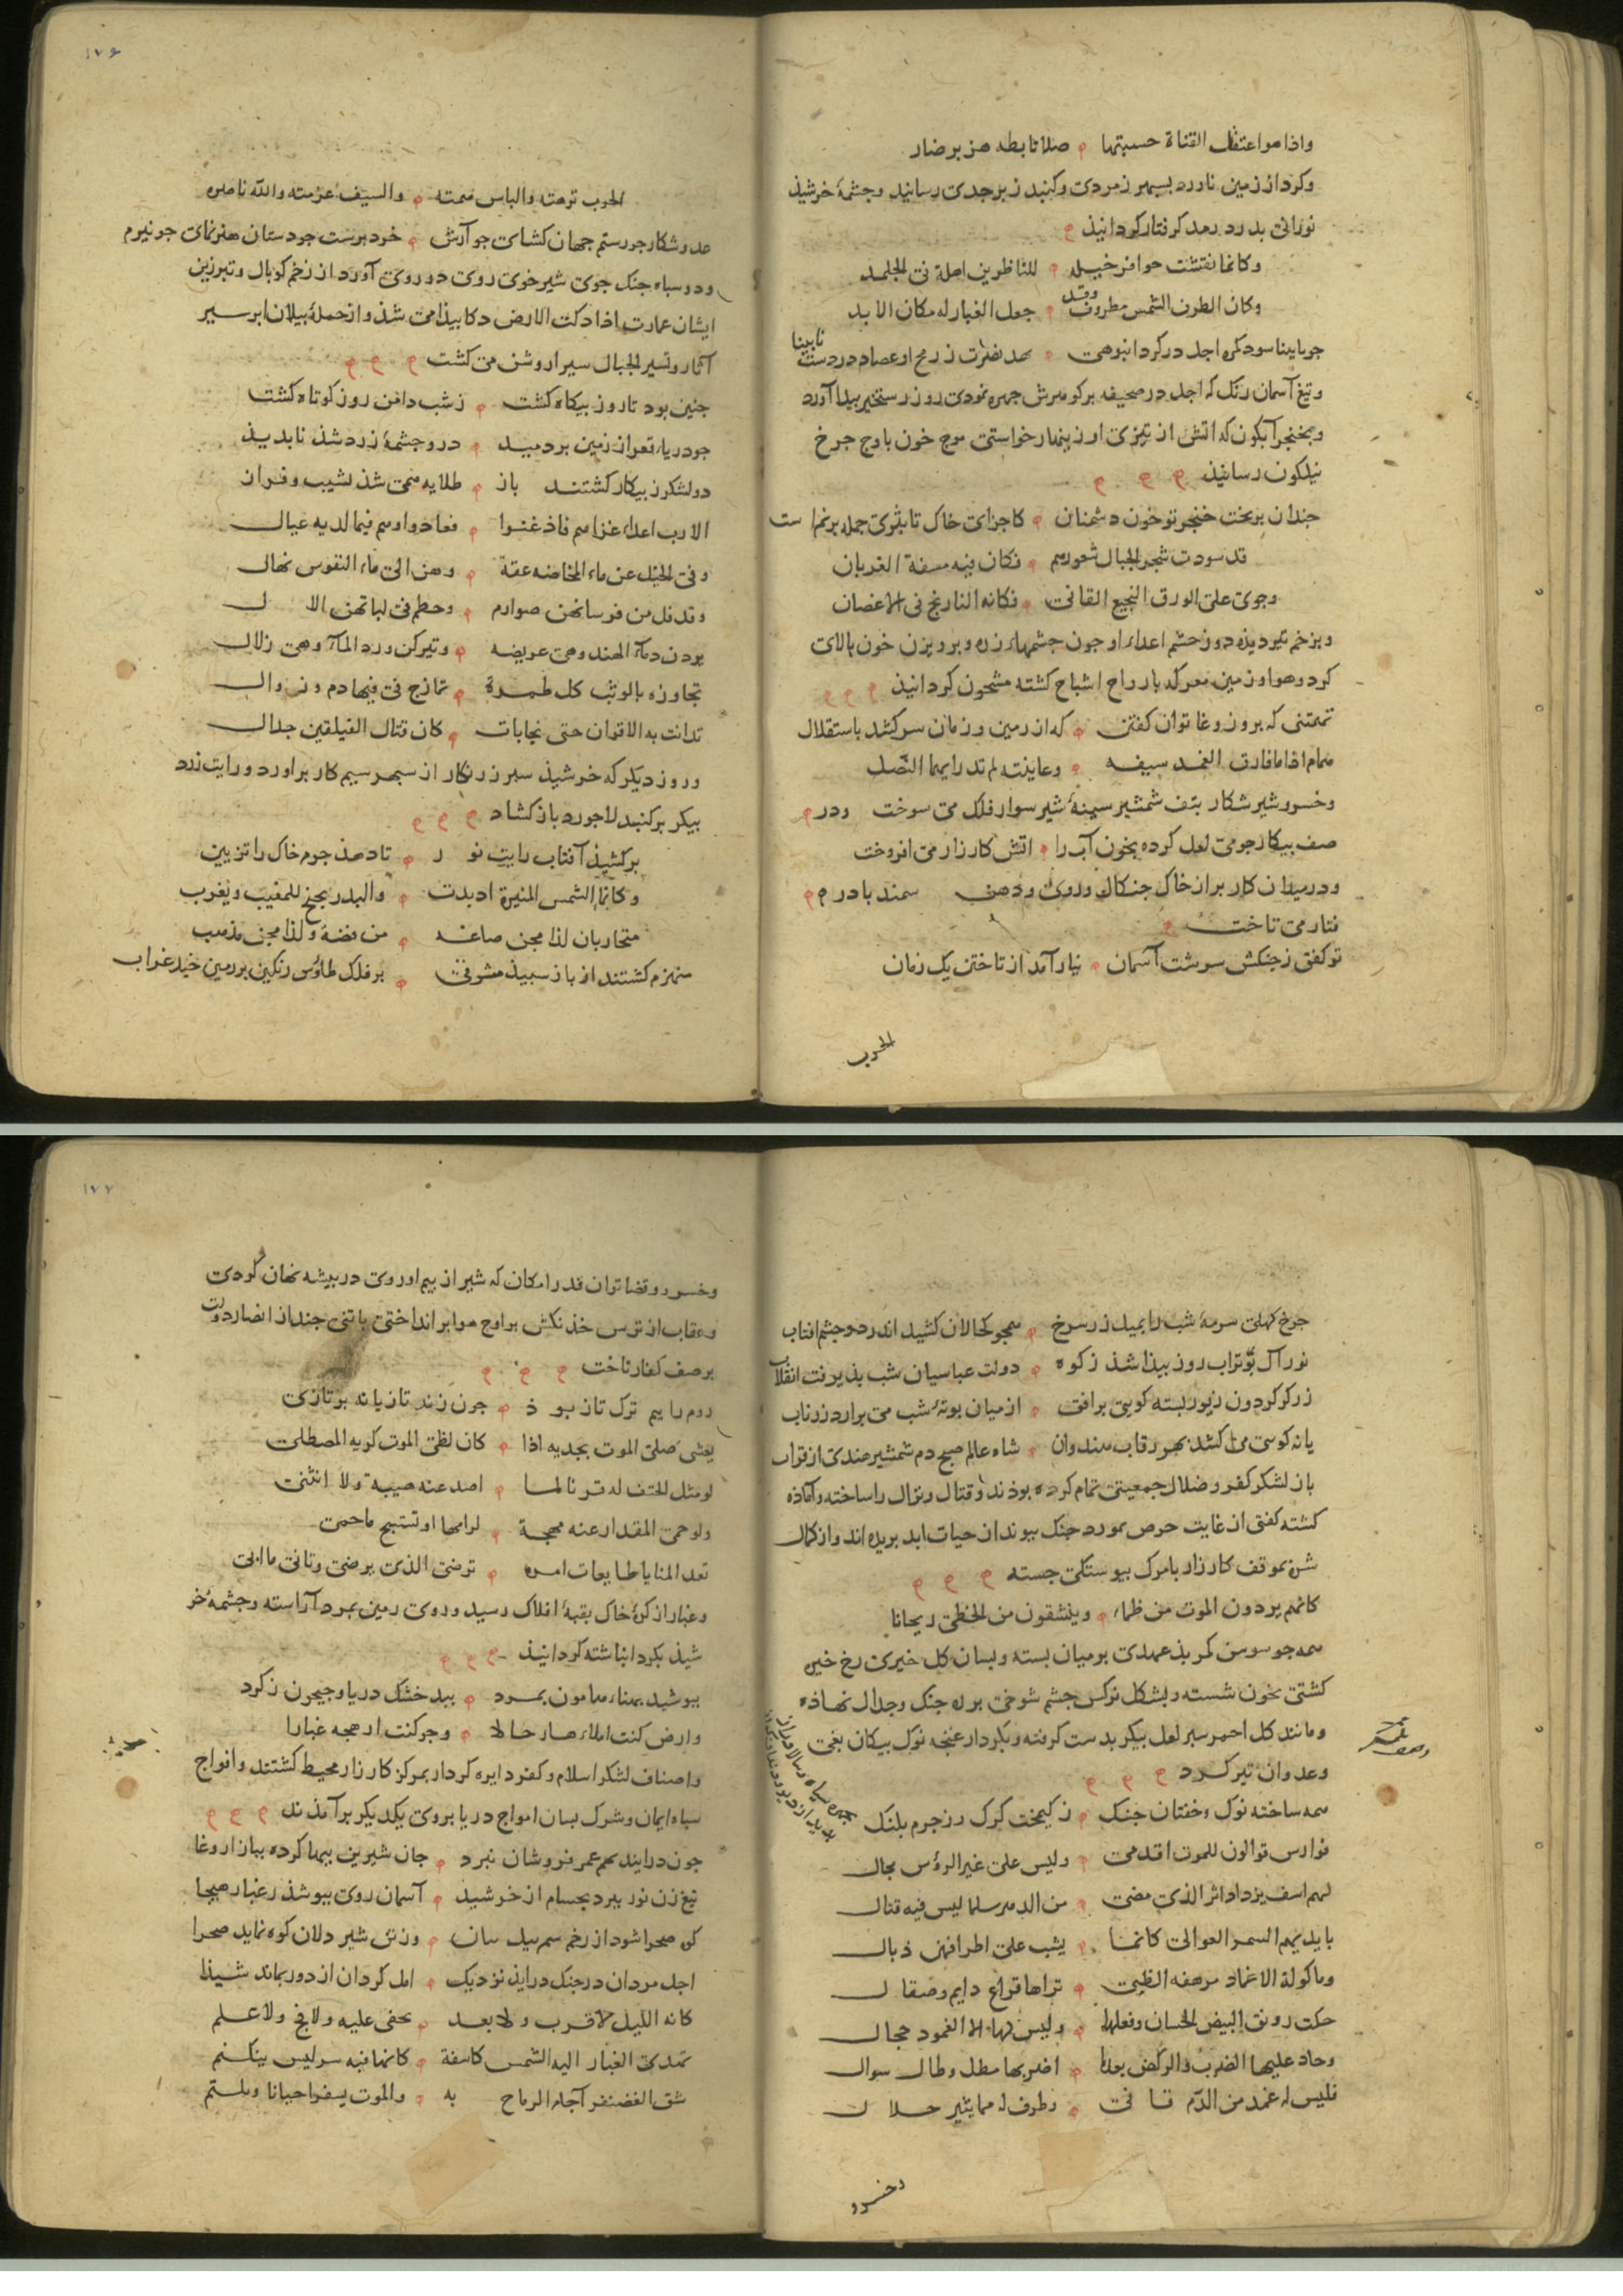 واذا هو اعتقل القناة حسبتها صلا تابطه هزبر ضار
وکرد از زمین ناورد بسپهر زمردی وکنبد زبرجدی رسانید وجشمهٔ خرشیذ
نورانی بدرد رمد کرفتار کردانیذ
وکانما نقشت حوافر خیله للناظرین اهلة فی الجلمد
وکان الطرف الشمس مطروف وقد جعل الغبار له مکان الاثمد
جو نابینا سوذ کره اجل در کرد انبوهی نابینا
وتیغ آسمان رنک که اجل در صحیفه بر کوهرش جهره نمودی روز رستخیز بیدا آورد
وبخنجر آبکون که اتش از تیزی او زینهار خواستی موج خون باوج جرخ
نیلکون رسانیذ
جندان بریخت خنجر تو خون دشمنان کاجزای خاک تا بثوی جمله برنم است
قد سودت شجر الجبال شعورهم فکان فیه مسفة الغربان
وجری علی الورق النجیع القانی فکانه النارنج فی الاغصان
وبزخم تیر دیذه دوز جشم اعداء او جون جشمهاء زره وبرویزن خون بالای
کرد وهوا وزمین معرکه بارواح اشباح کشته مشحون کردانیذ
تهمتنی که بروز وغا توان کفتن که از زمین وزمان سر کشد باستقلال
همام اذا ما فارق الغمد سیفه وعاینته لم تدر ایهما النصل
وخسرو شیر شکار بتف شمشیر سینهٔ شیر سوار فلک می سوخت ودر
صف بیکار جو می لعل کرده بخون آب را اتش کارزار می افروخت
ودر میدان کار بر از خاک جنکال وروی ودهن سمند باد ر
فتار می تاخت
تو کفتی زجنکش سرشت آسمان نیارآمد از تاختن یک زمان
الحرب
۱۷۶
الحرب نزهته والباس همته والسیف عزمته والله ناصره
عدو شکار جو رستم جهان کشای جو آرش خرد برست جو دستان هنر نمای جو نیرم
ودو سباه جنک جوی شیر خوی روی در روی آورد از زخم کوبال وتبرزین
ایشان عمارت اذا دکت الارض دکا بیذا می شذ واز حملهٔ بیلان ابر سیر
آثار وتسیر الجبال سیرا روشن می کشت
جنین بود تا روز بیکاه کشت زشب دامن روز کوتاه کشت
جو دریاء قعر از زمین بردمید درو جشمهٔ زرد شذ نابدیذ
دو لشکر ز بیکار کشتند باز طلایه همی شذ نشیب وفراز
الا رب اعداء غزاهم فاذعنوا فعادوا وهم فیما لدیه عیال
وفی الخیل عن ماء المخاضه عفة وهن الی ماء النفوس نهال
وقد فل من فرسانهن صوارم وحطم فی لباتهن الا ل
یردن دماء الهند وهی عریضه وتترکن ورد الماء وهی زلال
تجاوزه بالوثب کل طمرة تمازج فی فیها دم ورؤال
تدانت به الاقران حتی تجابات کان قتال الفیلقین جدال
وروز دیکر که خرشیذ سبر زرنکار از سبهر سیم کار براورد ورایت زرد
بیکر بر کنبد لاجورد باز کشاد
برکشیذ آفتاب رایت نو ر تا دهذ جرم خاک را تزیین
وکانما الشمس المنیرة اذ بدت والبدر یجنح للمغیب ویغرب
متحاربان لذا مجن صاغه من فضة ولذا مجن مذهب
منهزم کشتند از باز سبیذ مشرقی بر فلک طاوس رنکین بر زمین خیل غراب
جرخ کهلی سرمهٔ شب را بمیل زر سرخ همجو کحالان کشید اندر دو جشم افتاب
نور آل بو تراب روز بیذا شذ زکوه دولت عباسیان شب بذیرفت انقلاب
زرکر کردون زیور بسته کویی بر افق از میان بوتهٔ شب می برارد زر ناب
یا نه کوسی می کشد بهر رقاب هندوان شاه عالم صبح دم شمشیر هندی از قراب
باز لشکر کفر وضلال جمعیتی تمام کرده بوذند وقتال ونزال را ساخته وآماذه
کشته کفتی از غایت حرص بمورد جنک بیوند از حیات ابد بریده اند واز کمال
شره بموقف کارزار با مرک بیوستکی جسته
کانهم یردون الموت من ظما وینشقون من الخطی ریحانا
همه جو سوسن کمر بذ عهدی بر میان بسته وبسان کل خیری رخ خیره
کشتی بخون شسته وبشکل نرکس جشم شوخی بر ره جنک وجدال نهاذه
ومانند کل احمر سبر لعل بیکر بدست کرفته وبکردار غنجه نوک بیکان بغی
وعدوان تیز کرد
همه ساخته نوک وخفتان جنک زکیمخت کرک وز جرم بلنک
فوارس قوالون للموت اقدمی ولیس علی غیر الرؤس مجال
لهم اسف یزداد اثر الذی مضی من الدهر سلما لیس فیه قتال
بایدیهم السمر العوالی کانما یشب علی اطرافهن ذبال
وماکولة الاغماد مرهفه الظبی تراها قراع دایم وصقا ل
حکت رونق البیض الحسان وفعلها ولیس لها الا الغمود حجال
وجاد علیها الضرب والرکض بعدما اضر بها مطل وطال سوال
فلیس له غمد من الدم قا نی وطرف له مما یثیر جلا ل
وخسرو
۱۷۷
وخسرو قضا توان قدر امکان که شیر از بیم او روی در بیشه نهان کردی
وعقاب از ترس خذنکش بر اوج هوا بر انداختی با تنی جند از انصار دولت
بر صف کفار تاخت
روم را بیم ترک تاز بو ذ جون زند تازیانه بر تازی
یغشی صلی الموت بجدیه اذا کان لظی الموت کریه المصطلی
لو مثل الحتف له قرنا لما اصد عنه هیبة ولا انثنی
ولو حمی المقدار عنه مهجة لرامها او تستبیح ما حمی
تغد المنایا طایعات امره ترضی الذی یرضی وتابی ما ابی
وغبار از کرهٔ خاک بقبهٔ افلاک رسید وروی زمین بمرد آراسته وجشمهٔ خر
شیذ بکرد انباشته کردانیذ
ببوشید بهناء هامون بمرد ببد خشک دریا وجیحون زکرد
واصناف لشکر اسلام وکفر دایره کردار بمرکز کارزار محیط کشتند وافواج
سباه ایمان وشرک بسان امواج دریا بروی یکدیکر برآمذند
جون درایند بهم عمر فروشان نبرد جان شیرین ببها کرده ببازار وغا
تیغ زن نور ببرد بحسام از خرشید آسمان روی ببوشذ زغبار هیجا
که صحرا شود از زخم سم بیل سان وزتن شیر دلان کوه نماید صحرا
اجل مردان در جنک درایذ نزدیک امل کردان از دور بماند شیذا
کانه اللیل لا قرب ولا بعد یخفی علیه ولا فج ولا علم
تهدی الغبار الیه الشمس کاسفة کانما فیه سر لیس ینکتم
شق الغضنفر آجام الرماح به والموت یسفر احیانا ویلتثم